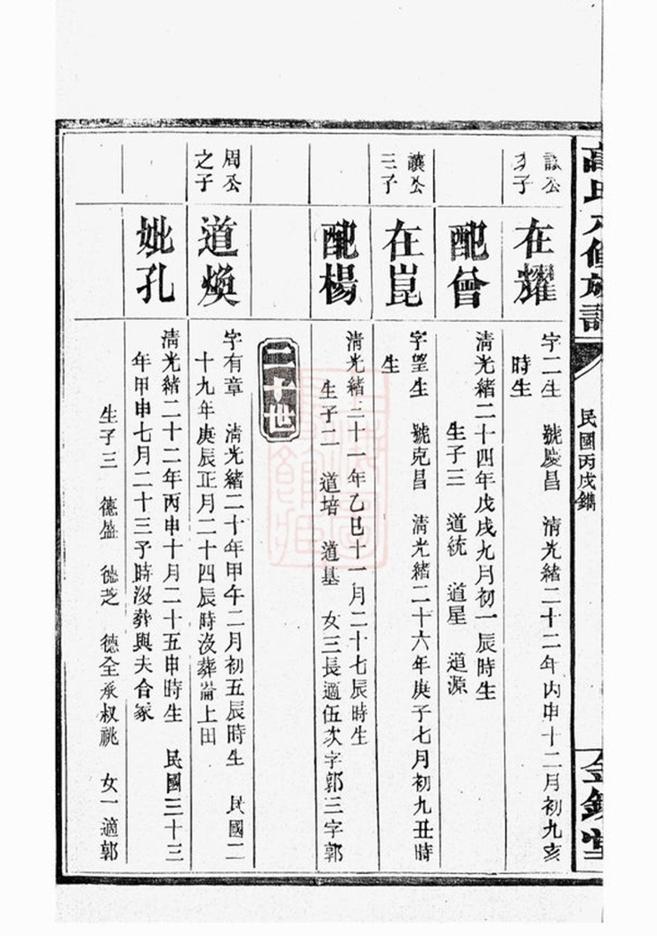 高氏六修族譜
民國丙戌鐫
公
子
在耀
字二生 號慶昌 清光緒二十二年丙申十二月初九亥
時生
配曾
清光緒二十四年戊戌九月初一辰時生
生子三 道統 道星 道源
讓公
三子
在崑
字望生 號克昌 清光緒二十六年庚子七月初九丑時
生
配楊
清光緒三十一年乙巳十一月二十七辰時生
生子二 道培 道基 女三長適伍次字郭三字郭
二十世
周公
之子
道煥
字有章 清光緒二十年甲午二月初五辰時生 民國二
十九年庚辰正月二十四辰時沒葬崙上田
妣孔
清光緒二十二年丙申十月二十五申時生 民國三十三
年甲申七月二十三子時沒葬與夫合冢
生子三 德盛 德芝 德全承叔祧 女一適郭